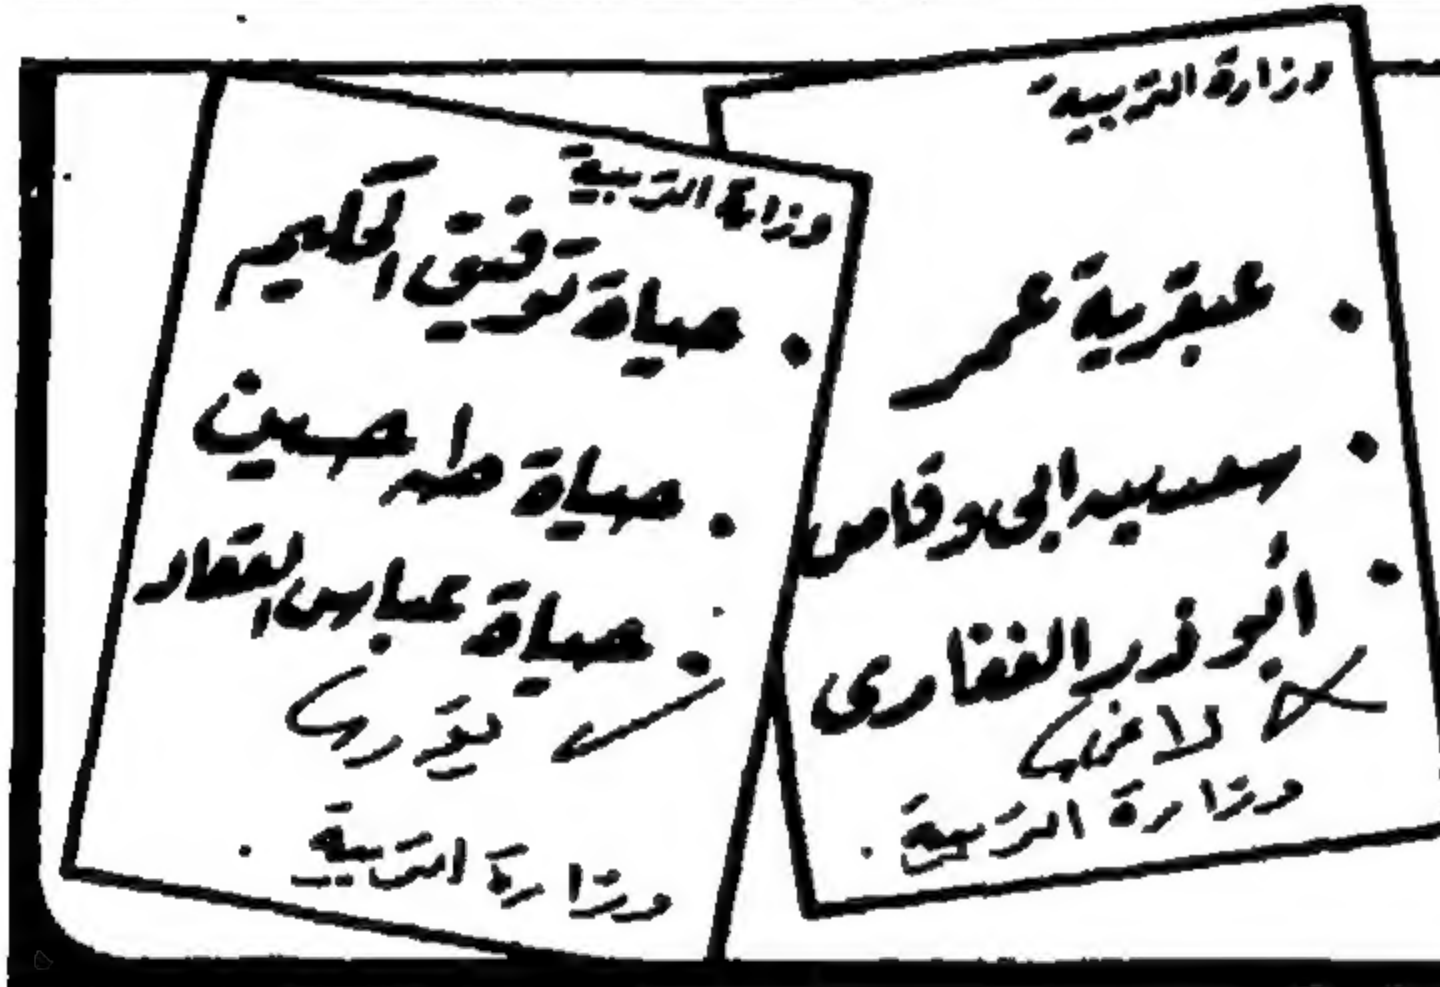 وزارة التربية
• عبقرية عمر
• سعد بن أبي وقاص
• أبو ذر الغفاري
وزارة التربية
وزارة التربية
• حياة توفيق الحكيم
• حياة طه حسين
• حياة عباس العقاد
وزارة التربية